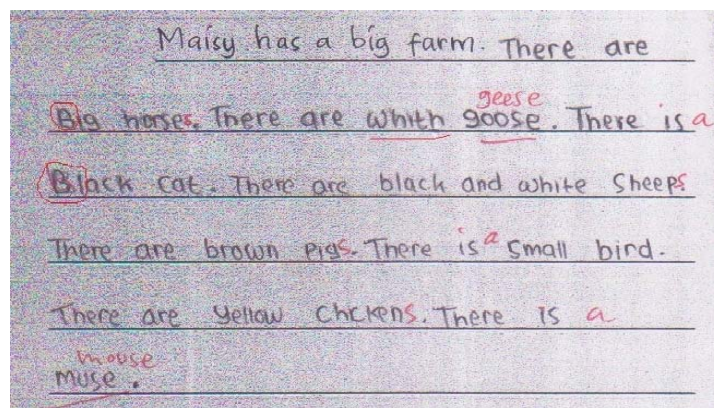 Maisy has a big farm. There are
geese
Big horses. There are whith goose. There is a
Black cat. There are black and white Sheeps
There are brown pigs. There is a small bird.
There are yellow chckens. There is a
mouse
muse.